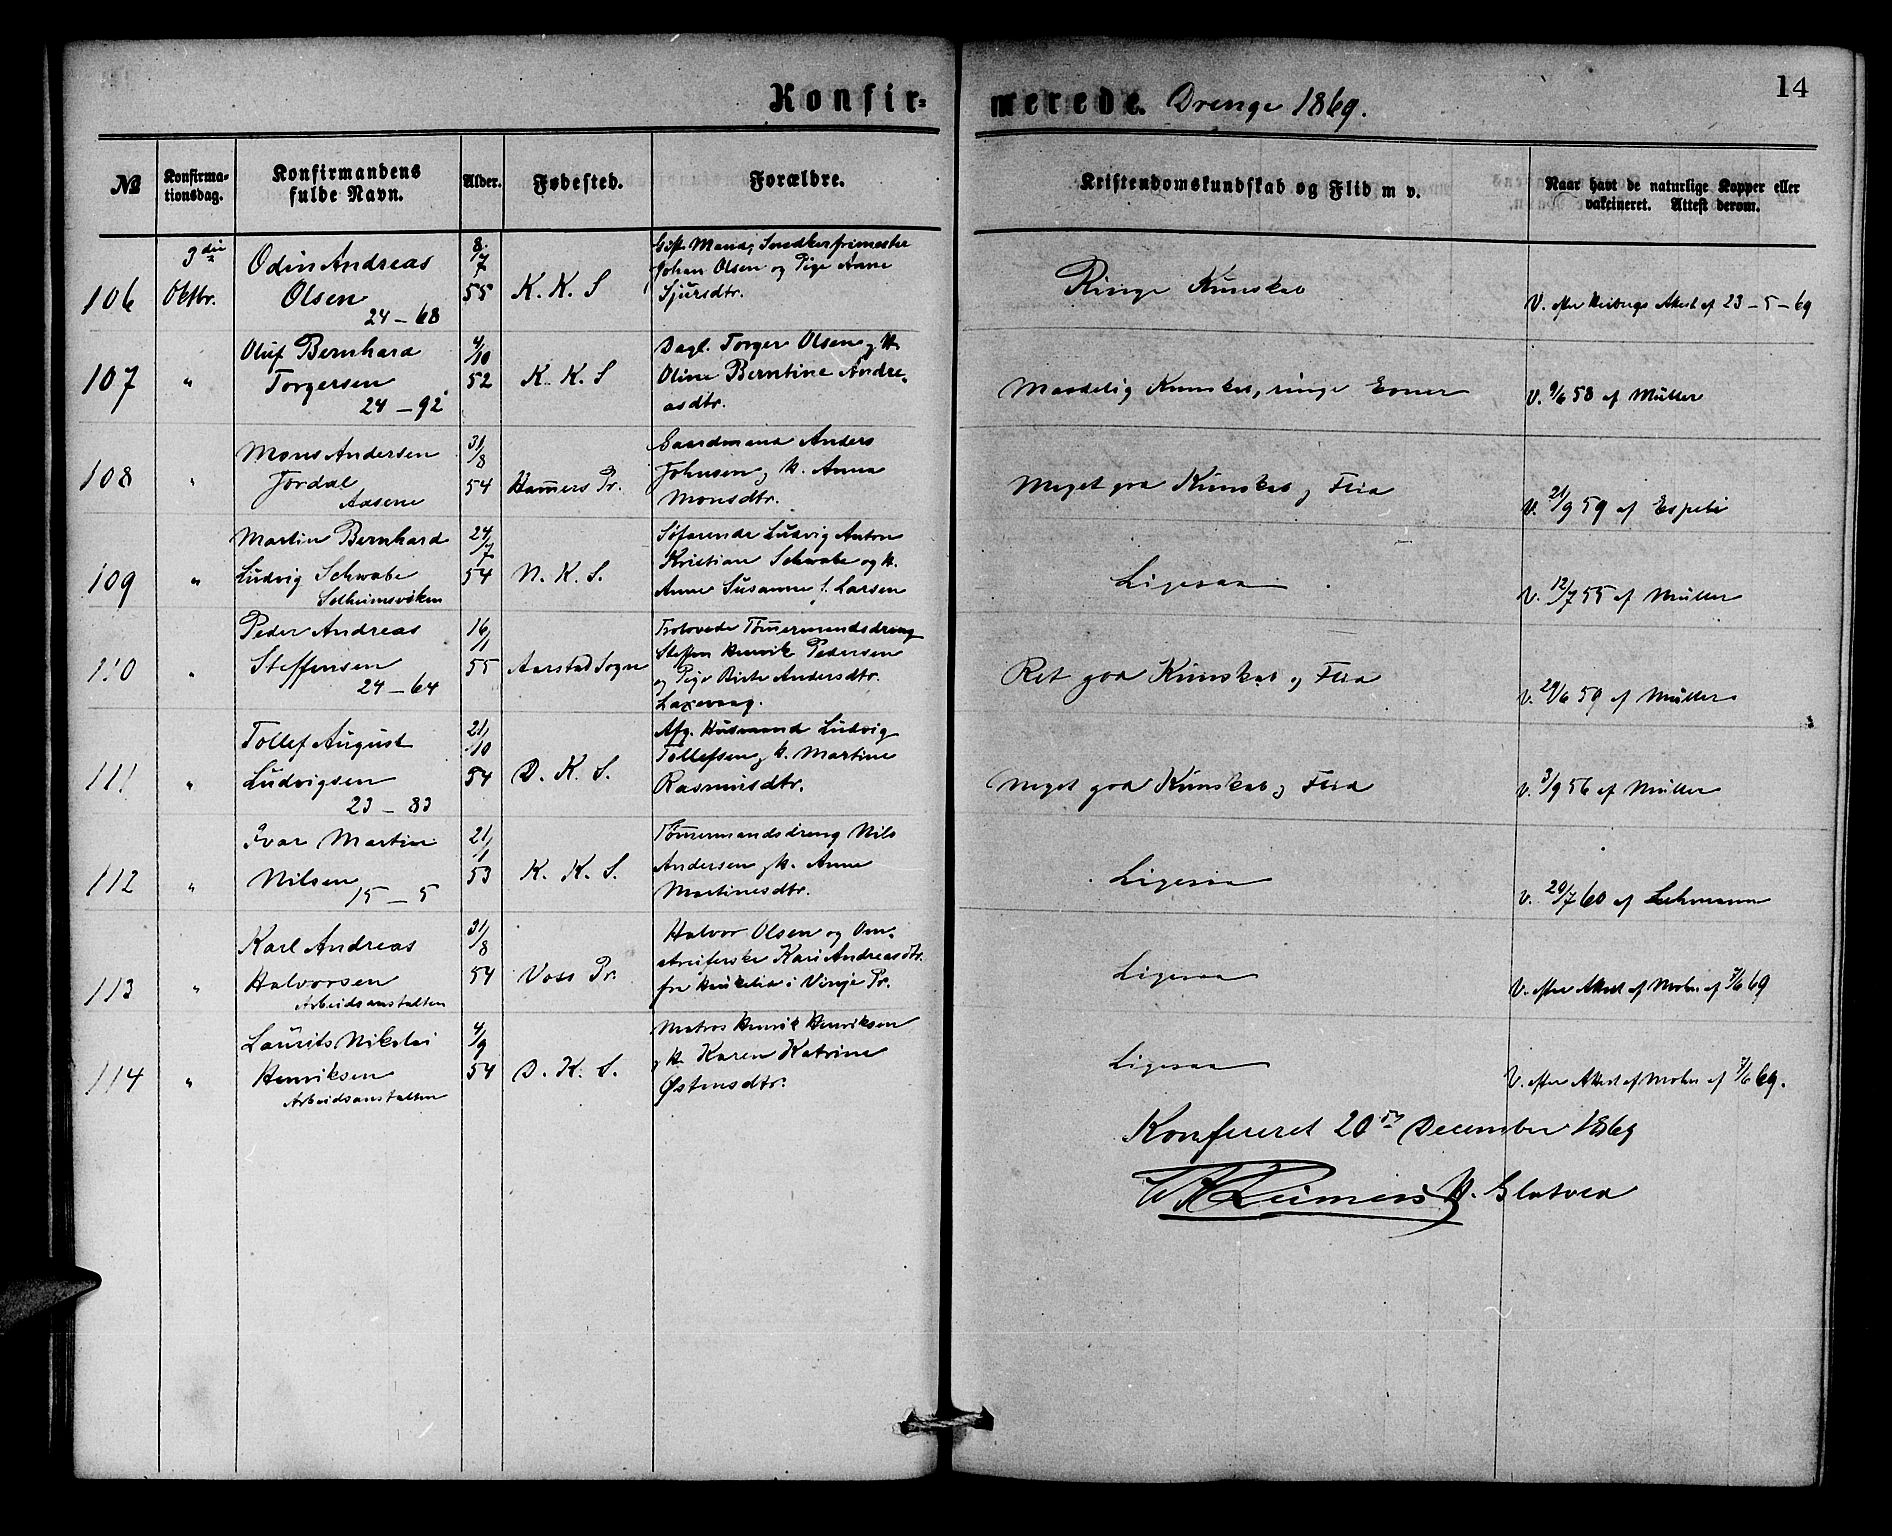 Konfir-
merede. Drenge 1869.
14
№
Konfirma-
tionsdag.
Konfirmandens
fulde Navn.
Alder.
Fødested.
Forældre.
Kristendomskundskab og Flid m v.
Naar havt de naturlige Kopper eller
vakcineret. Attest derom.
106
3die
Oktbr.
Odin Andreas
Olsen
24 – 68
8/7
55
K. K. S
Gift Mand, Snedker
Johan Olsen og Pige Anne
Sjursdtr.
Ringe Kunskab
V. efter Attest af 23 – 5 – 69
107
"
Oluf Bernhard
Torgersen
24 – 92
4/10
52
K. K. S
Dagl. Torger Olsen og H.
Oline Berntine Andre-
asdtr.
Maadelig Kunskab, ringe Evner
V. 9/6 58 af Müller
108
"
Mons Andersen
Jordal
Aasene
31/8
54
Hamers Pr.
Gaardmand Anders
Johnsen og H. Anna
Monsdtr.
Meget god Kunskab og Flid
V. 21/9 59 af Espeli
109
"
Martin Bernhard
Ludvig Schwabe
Solheimsviken
24/7
54
N. K. S.
Søfarende Ludvig Anton
Kristian Schwabe og H.
Anne Susanne f. Larsen
Ligesaa
V. 12/7 55 af Müller
110
"
Peder Andreas
Steffensen
24 – 64
16/1
55
Aarstad Sogn
Trolovede Tømermandsdreng
Steffen Henrik Pedersen
og Pige Birte Andersdtr.
Laxevaag.
Ret god Kunskab og Flid
V. 29/6 59 af Müller
111
"
Tollef August
Ludvigsen
23 – 83
21/10
54
D. K. S.
Afg. Husmand Ludvig
Tollefsen og H. Martine
Rasmusdtr.
Meget god Kunskab og Flid
V. 3/9 56 af Müller
112
"
Ivar Martin
Nilsen
15 – 5
21/1
53
K. K. S.
Tømermandsdreng Nils
Andersen og H. Anne
Martinesdtr.
Ligesaa
V. 20/7 60 af Lehmann
113
"
Karl Andreas
Halvorsen
Arbeidsanstalten
31/8
54
Voss Pr.
Halvor Olsen og Om-
streiferske Kari Andreasdtr.
fra Haukelid i Vinje Pr.
Ligesaa
V. efter Attest af Mohn af 7/6 69
114
"
Laurits Nikolai
Henriksen
Arbeidsanstalten
4/9
54
D. K. S.
Matros Henrik Henriksen
og H. Karen Katrine
Østensdtr.
Ligesaa
V. efter Attest af Mohn af 7/6 69.
Konfereret 20de December 1869
Reimers H. Glatved